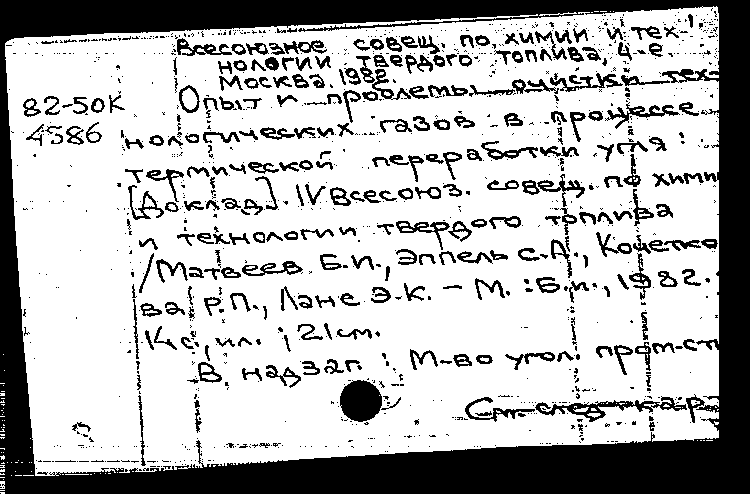 Всесоюзное совещ. по химии и тех-
нологии твердого топлива, 4-е.
Москва. 1982.
82-50К
4586
Опыт и проблемы очистки тех-
нологических газов в процессе
термической переработки угля:
[Доклад]. IV Всесоюз. совещ. по хими
и технологии твердого топлива
/Матвеев Б.И., Эппель С.А., Кочетко
ва Р.П., Лане Э.К. – М. : Б.и., 1982. -
14 с., ил. ; 21 см.
В надзаг. : М-во угол. пром-сти
См. след. кар